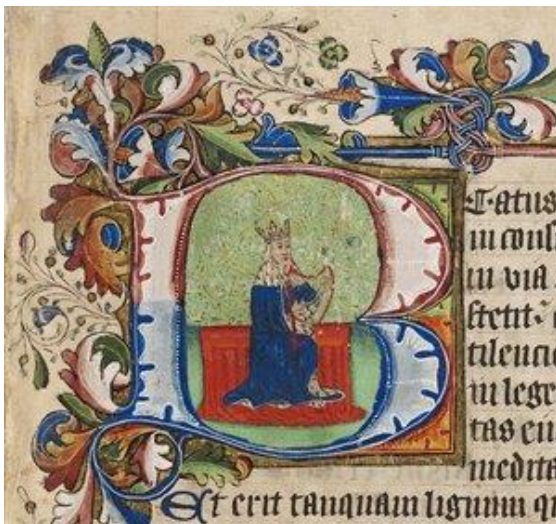 BEatus
in cons
in via
stetit:
tilenci
in lege
tas eiu
medita
Et erit tanquam lignum q